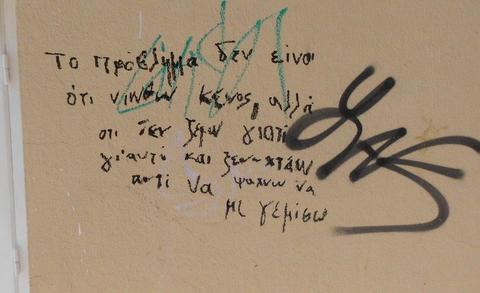 Το πρόβλημα δεν είναι
ότι νιώθω κενός, αλλά
οτι δεν ξέρω γιατί
γι'αυτό και
να ψάχνω να
με γεμίσω